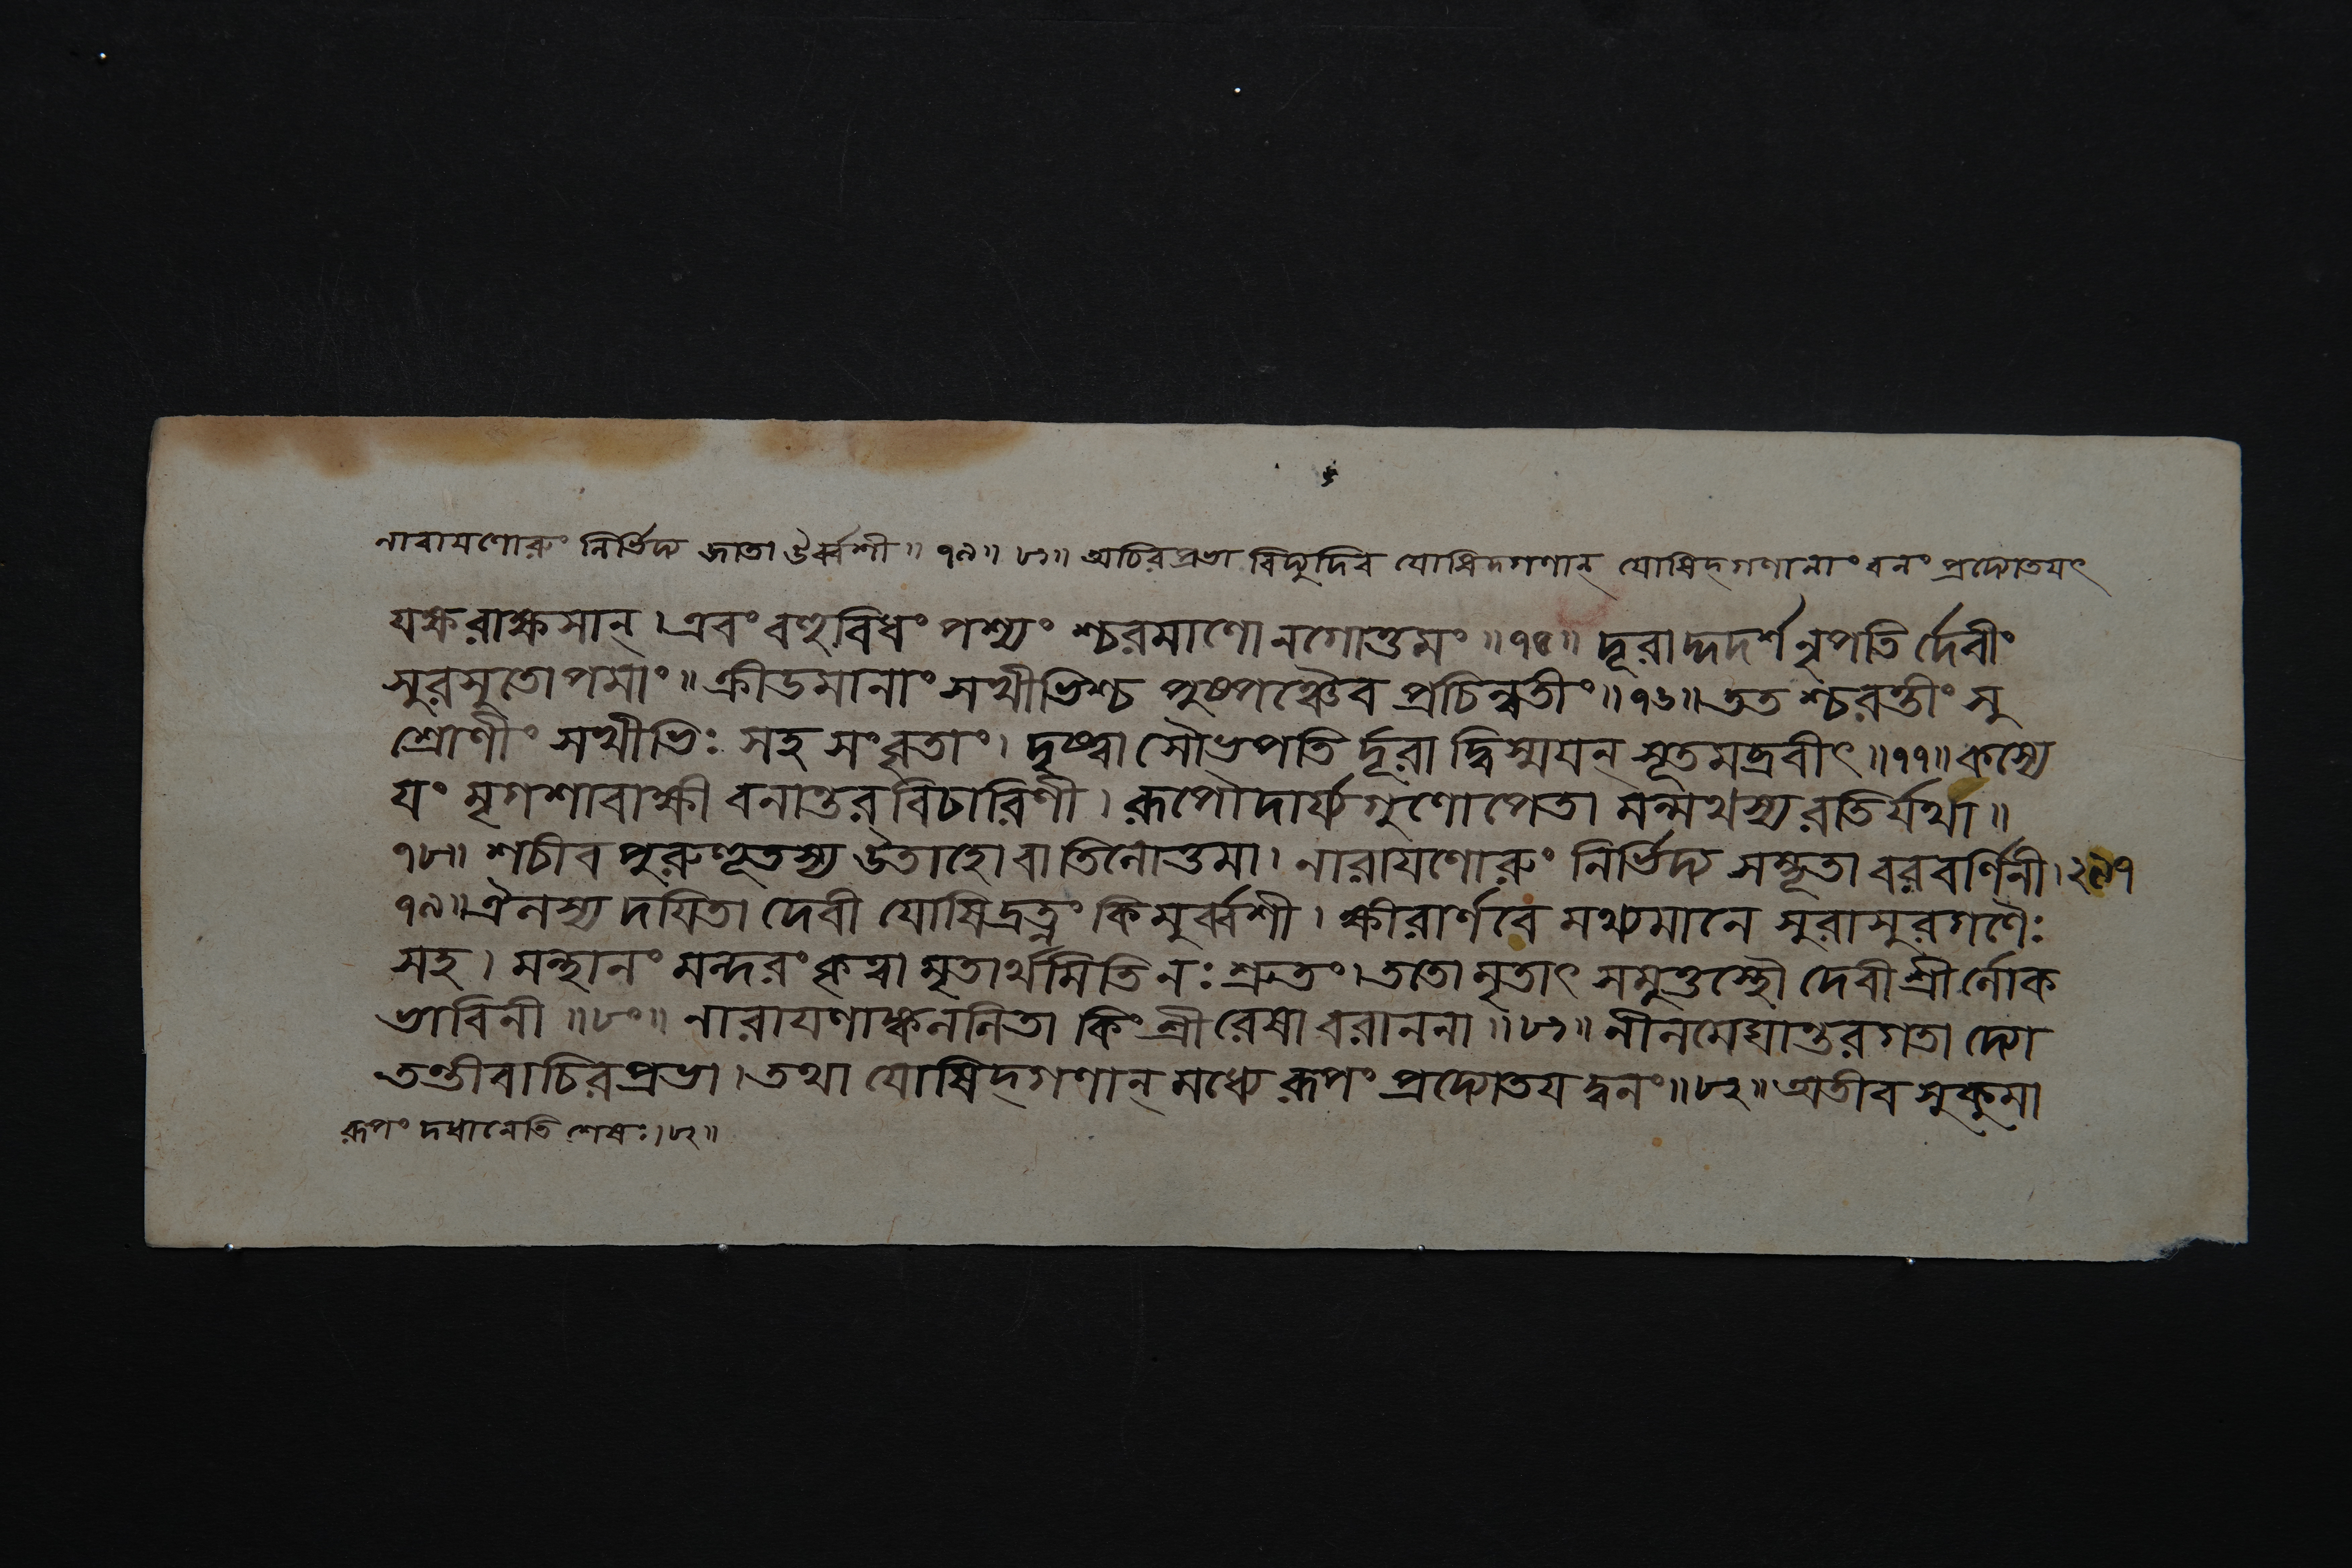 নারাযণোরুং নির্ভিদ্য জাতা ঔর্ব্বশী ॥ ৭৯॥ ৮১॥ অচিরপ্রভা বিদ্যুদিব যোষিদগণান্ যোষিদ্গণানাং বনং প্রদ্যোতযৎ
যক্ষরাক্ষসান্। এবং বহুবিধং পশ্যং শ্চরমাণো নগোত্তমং ॥৭৫॥ দূরাদ্দদর্শ নৃপতি র্দেবীং
সুরসুতোপমাং॥ ক্রীডমানাং সখীভিশ্চ পুষ্পঞ্চৈব প্রচিন্বতীং॥৭৬॥ তত শ্চরন্তীং সু
শ্রোণীং সখীভিঃ সহ সংবৃতাং। দৃষ্ট্বা সৌভপতি র্দূরা দ্বিস্ময়ন্ সূতমব্রবীৎ॥৭৭॥ কস্যে
যং মৃগশাবাক্ষী বনান্তরবিচারিণী। রূপৌদার্য্যগুণোপেতা মন্মথস্য রতির্যথা॥
৭৮॥ শচীব পুরুহূতস্য উতাহো বা তিলোত্তমা। নারাযণোরুং নির্ভিদ্য সম্ভূতা বরবর্ণিনী। ২৯৭
৭৯॥ ঐলস্য দযিতা দেবী যোষিদ্রত্নং কিমুর্ব্বশী। ক্ষীরার্ণবে মথ্যমানে সুরাসুরগণৈঃ
সহ। মন্থানং মন্দরং কৃত্বা মৃতার্থমিতি নঃ শ্রুতং। ততো মৃতাৎ সমুত্তস্থৌ দেবী শ্রীর্লোক
ভাবিনী ॥৮০॥ নারাযণাঙ্কললিতা কিং শ্রীরেষা বরাননা॥৮১॥ নীলমেঘান্তরগতা দ্যো
তন্তীবাচিরপ্রভা। তথা যোষিদ্গণান্ মধ্যে রূপং প্রদ্যোতযদ্বনং॥৮২॥ অতীব সুকুমা
রূপং দধানেতি শেষঃ।৮২॥